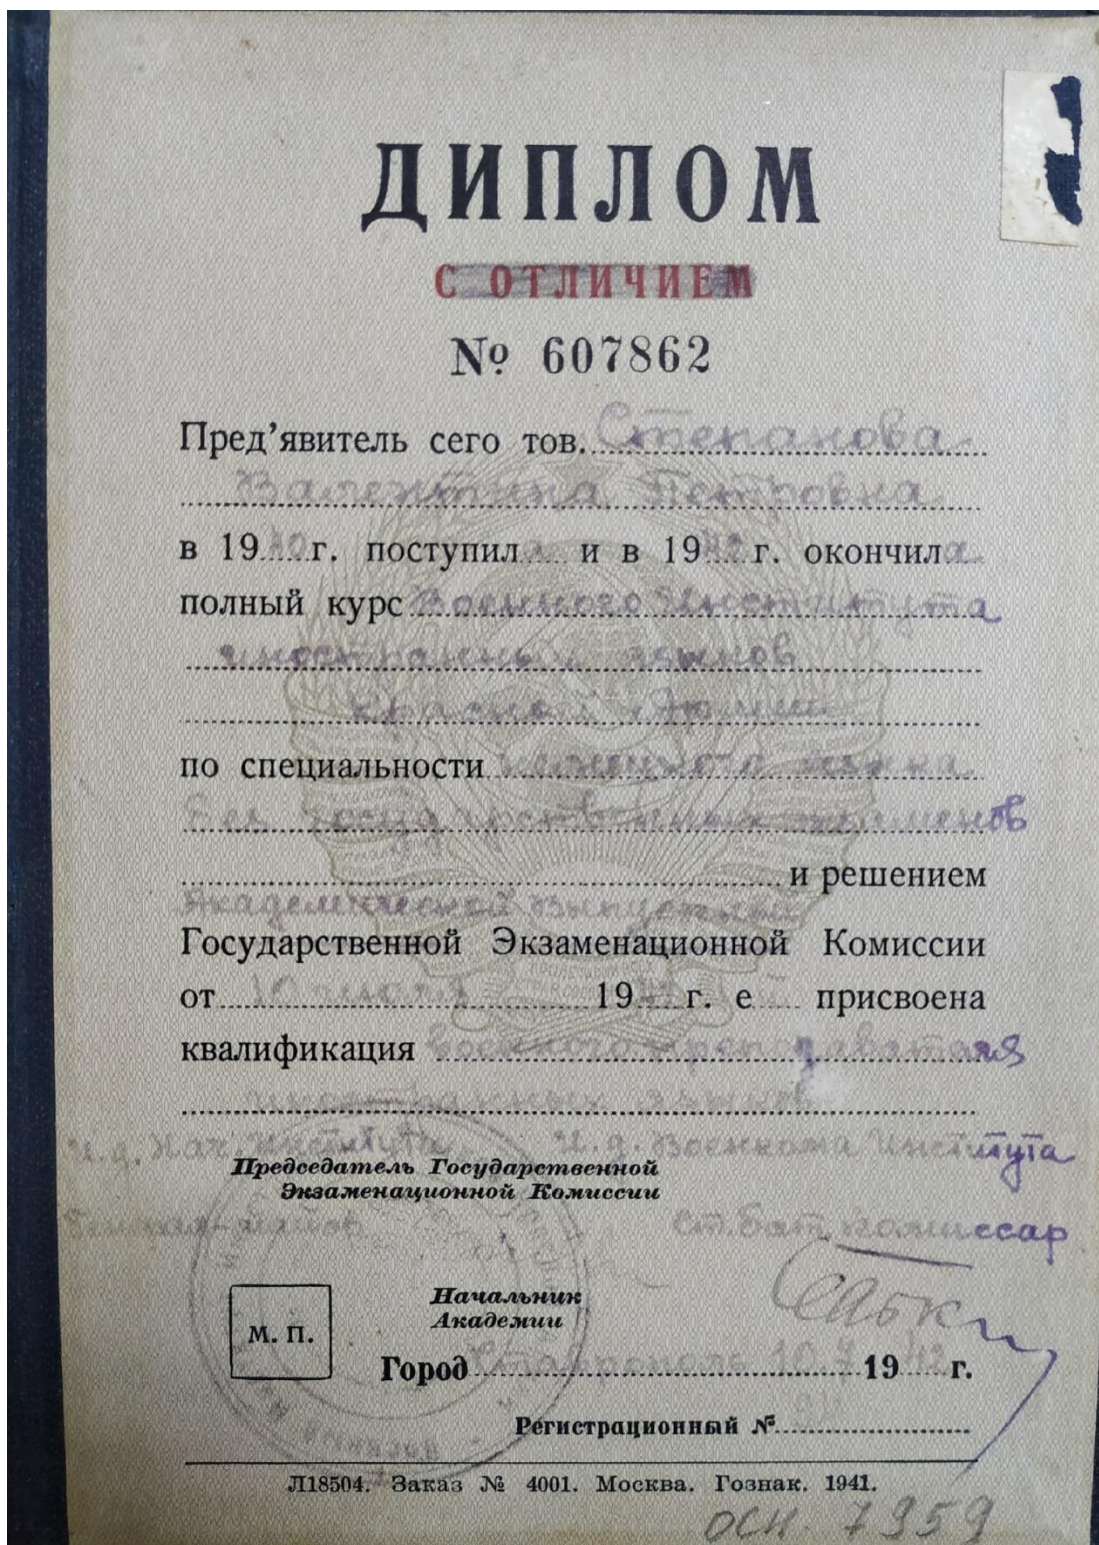 ДИПЛОМ
С ОТЛИЧИЕМ
№ 607862
Пред'явитель сего тов. Степанова
Валентина Петровна
в 1940 г. поступила и в 1942 г. окончила
полный курс Военного Института
иностранных языков
Красной Армии
по специальности немецкого языка
без государственных экзаменов
и решением
Академической выпускной
Государственной Экзаменационной Комиссии
от 10 июля 1942 г. ей присвоена
квалификация военного преподавателя
иностранных языков
И.д. Нач. Института И.д. Военкома Института
Председатель Государственной
Экзаменационной Комиссии
Генерал-майор Ст. бат. комиссар
Начальник
Академии
М. П.
Город Ставрополь 10.7 1942 г.
Регистрационный №
Л18504. Заказ № 4001. Москва. Гознак. 1941.
осн. 7959